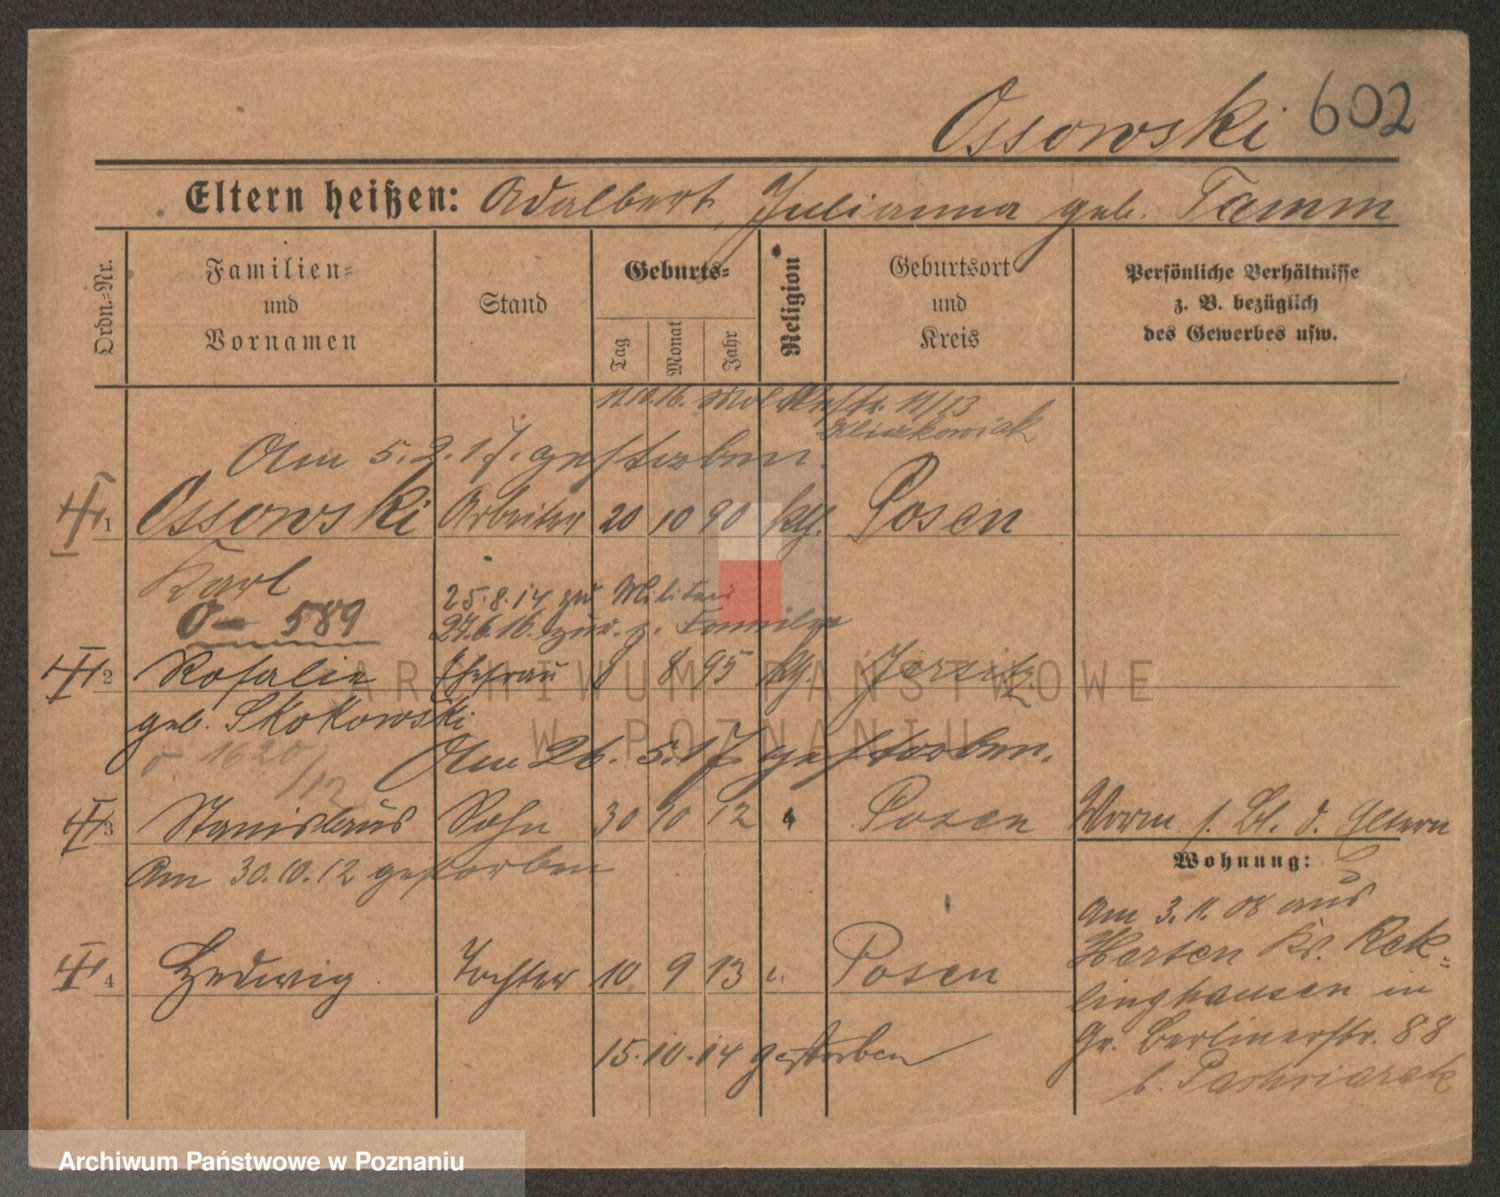 Ossowski 602
Eltern heißen: Adalbert, Julianna geb. Tamm
Ordn.-Nr.
Familien-
und
Vornamen
Stand
Geburts-
Tag
Monat
Jahr
Religion
Geburtsort
und
Kreis
Persönliche Verhältnisse
z. B. bezüglich
des Gewerbes usw.
11.10.16. 11/13
Am 5.2.17. gestorben.
1 Ossowski Arbeiter 20 10 90 kth. Posen
Karl
O- 589
25.8.14 zu Militär
27.6.16. zur. z. Familie
2 Rosalie Ehefrau 8 8 95 kth. Jersitz
geb. Skokowski
1620/12
Am 26. 5.17 gestorben.
3 Stanislaus Sohn 30 10 12 Posen Worm. s. Bl. d. Eltern
Am 30.10.12 gestorben
4 Hedwig Tochter 10 9 13 Posen
15.10.14 gestorben
Wohnung:
Am 3.11.08 aus
Herten Kr. Rek-
linghausen in
Gr. Berlinerstr. 88
b.
ARCHIWUM PAŃSTWOWE
W POZNANIU
Archiwum Państwowe w Poznaniu